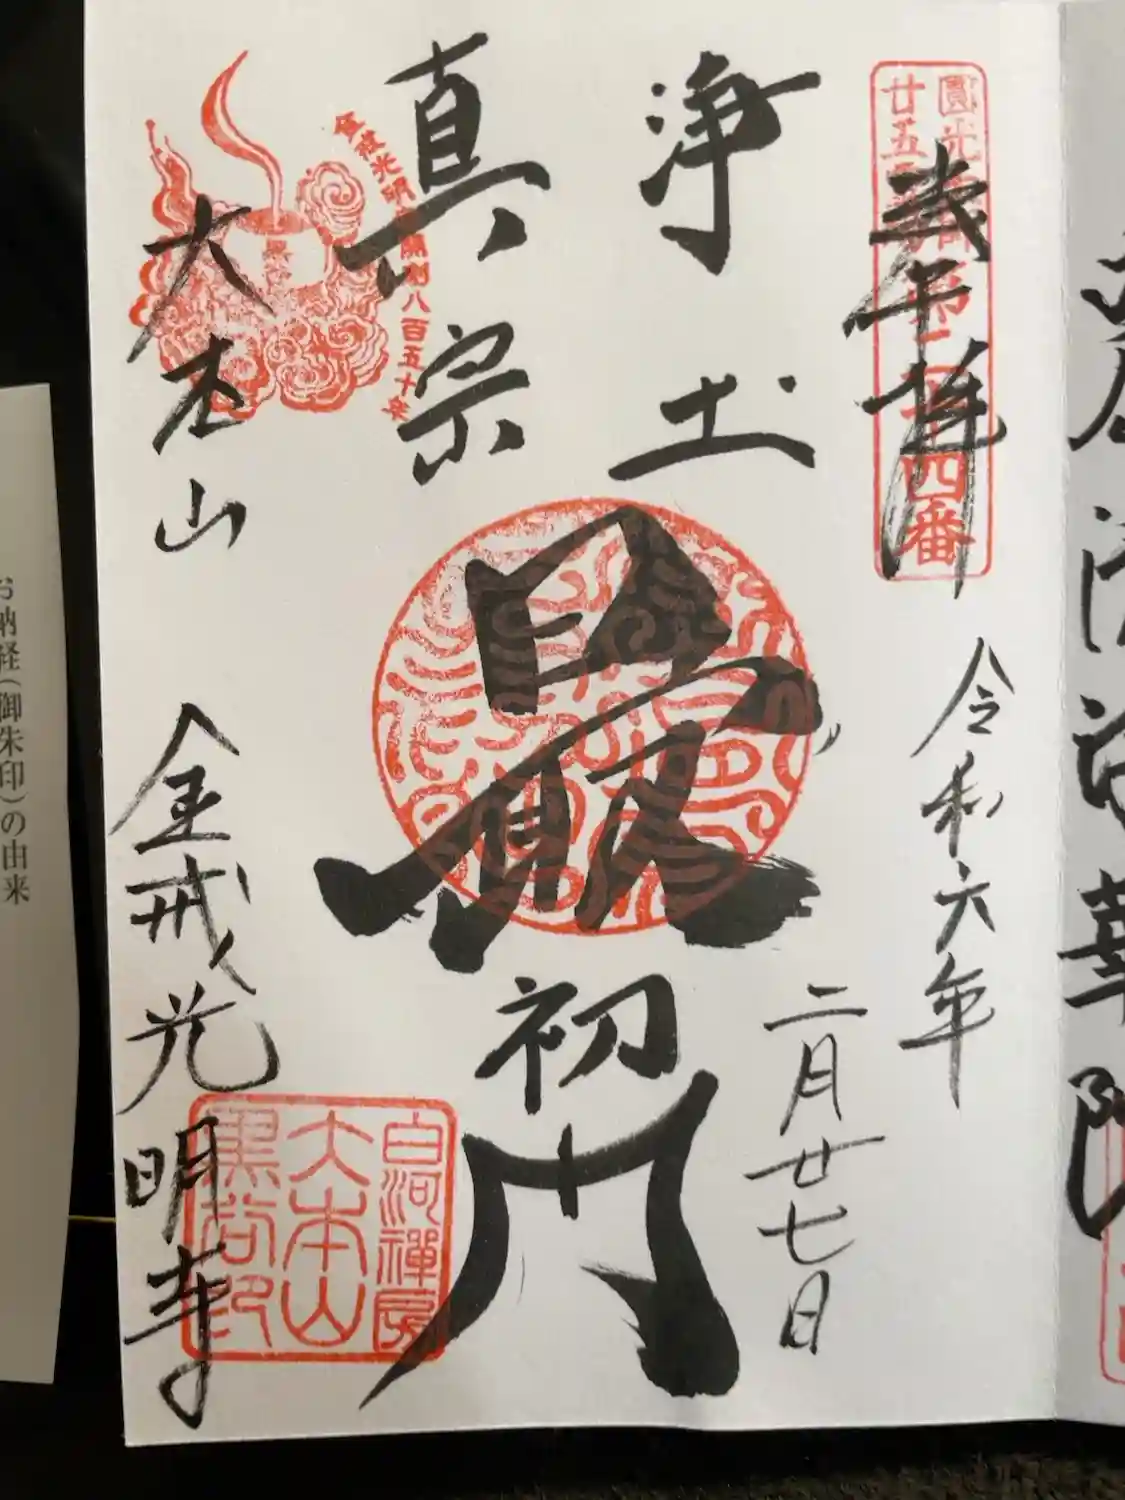 圓光
廿五
四番
奉拝
令和六年
二月廿七日
浄土
真宗
最初門
金戒光明 開創八百五十年
大本山
金戒光明寺
白河禅房
大本山
黒谷印
お納経(御朱印)の由来